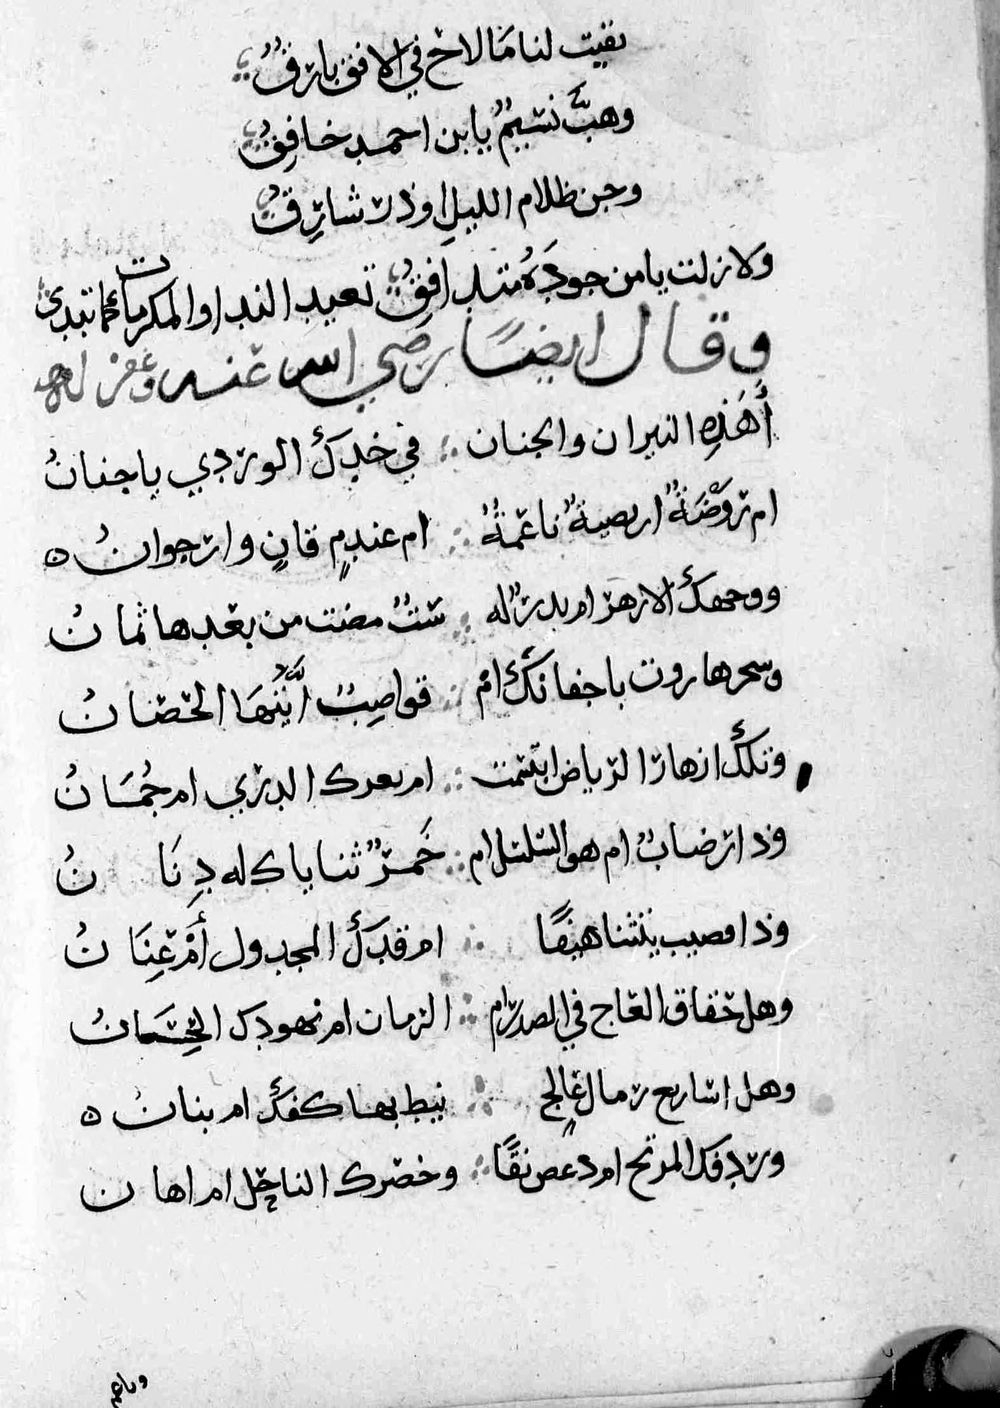 بقيت لنا ما لاح في الافق بارقٌ
وهبَّ نسيمٌ يا بن احمد خافقٌ
وجن ظلام الليلِ او ذر شارِقٌ
ولا زلت يا من جودَهُ متدافقٌ تعيد الندا والمكرمات كما تبدي
وقال ايضًا رضي الله عنه وغفر له
أَهَذِهِ النيران والجنان في خدكَ الوردي يا جنانُ
ام رَوْضَةٌ اريضةٌ ناعمةٌ ام عندمٍ قانٍ وارجوانُ
ووجهكَ الازهر ام بدرٌ له ستٌ مضت من بعدها ثمانُ
وسحر هاروت باجفانكَ امْ قواضبٌ اَيَّتُهَا الحضانُ
وتلكَ ازهار الرياض ابتسمت ام ثغرك الدري ام جُمَانُ
وذا رضابٌ ام هو السلسل ام خَمرٌ ثناياك له دِنَانُ
وذا قضيب ينثنا هيفًا ام قدكَ المجدول أَمْ عِنَانُ
وهل حقاق العاج في الصدر ام الرمان ام نهودك الحِسَانُ
وهل اساريع رمال عالجٍ نيط بها كفكَ ام بنانُ
وردفك المرتج ام دعص نقًا وخصرك الناحل ام اهانُ